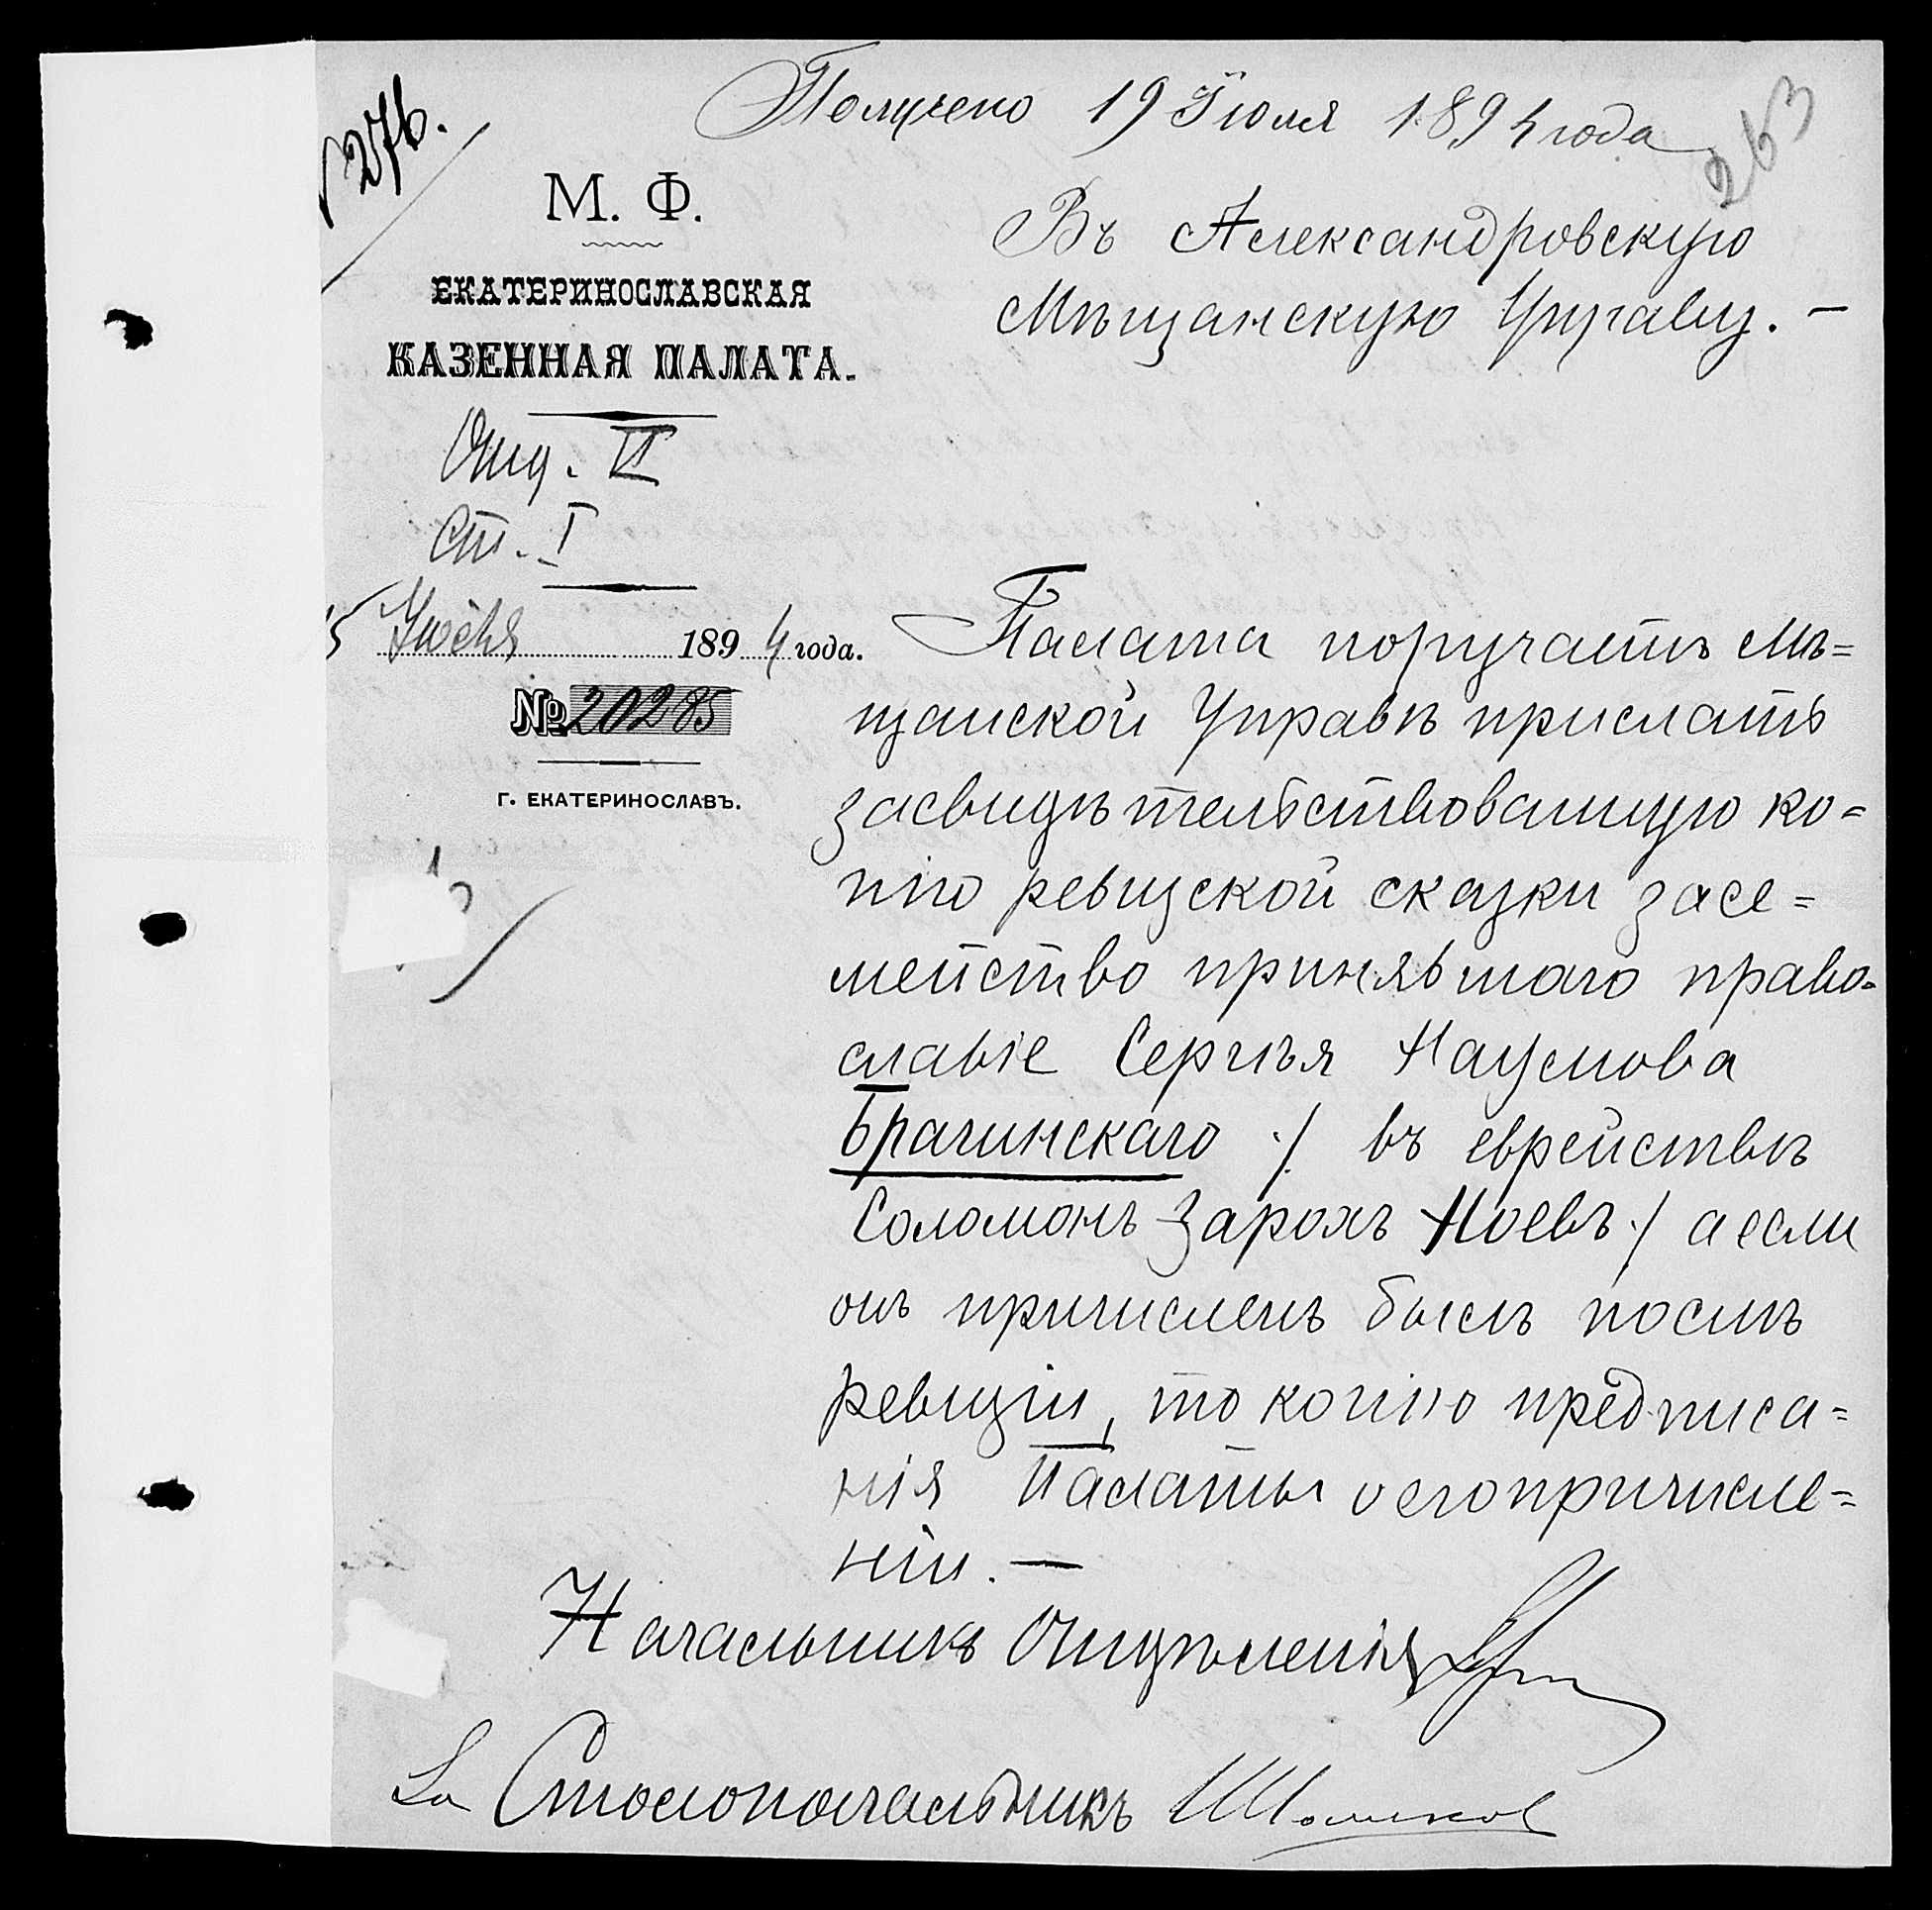 Получено 19 Іюля 1894 года
263
276.
М. Ф.
ЕКАТЕРИНОСЛАВСКАЯ
КАЗЕННАЯ ПАЛАТА.
Отд. II
Ст. I
15 Июля 1894 года.
№ 20285
Г. ЕКАТЕРИНОСЛАВЪ.
Въ Александровскую
Мѣщанскую Управу. –
Палата поручаетъ Мѣ=
щанской Управѣ прислать
засвидѣтельствованную ко=
пію ревизской сказки за се=
мейство принявшаго право=
славіе Сергѣя Наумова
Брагинскаго ./ въ еврействѣ
Соломонъ Зарохъ Ноевъ ./ а если
онъ причисленъ былъ послѣ
ревизіи, то копію предписа=
нія Палаты о его причисле=
ніи. –
Начальникъ Отдѣленія
За Столоначальникъ